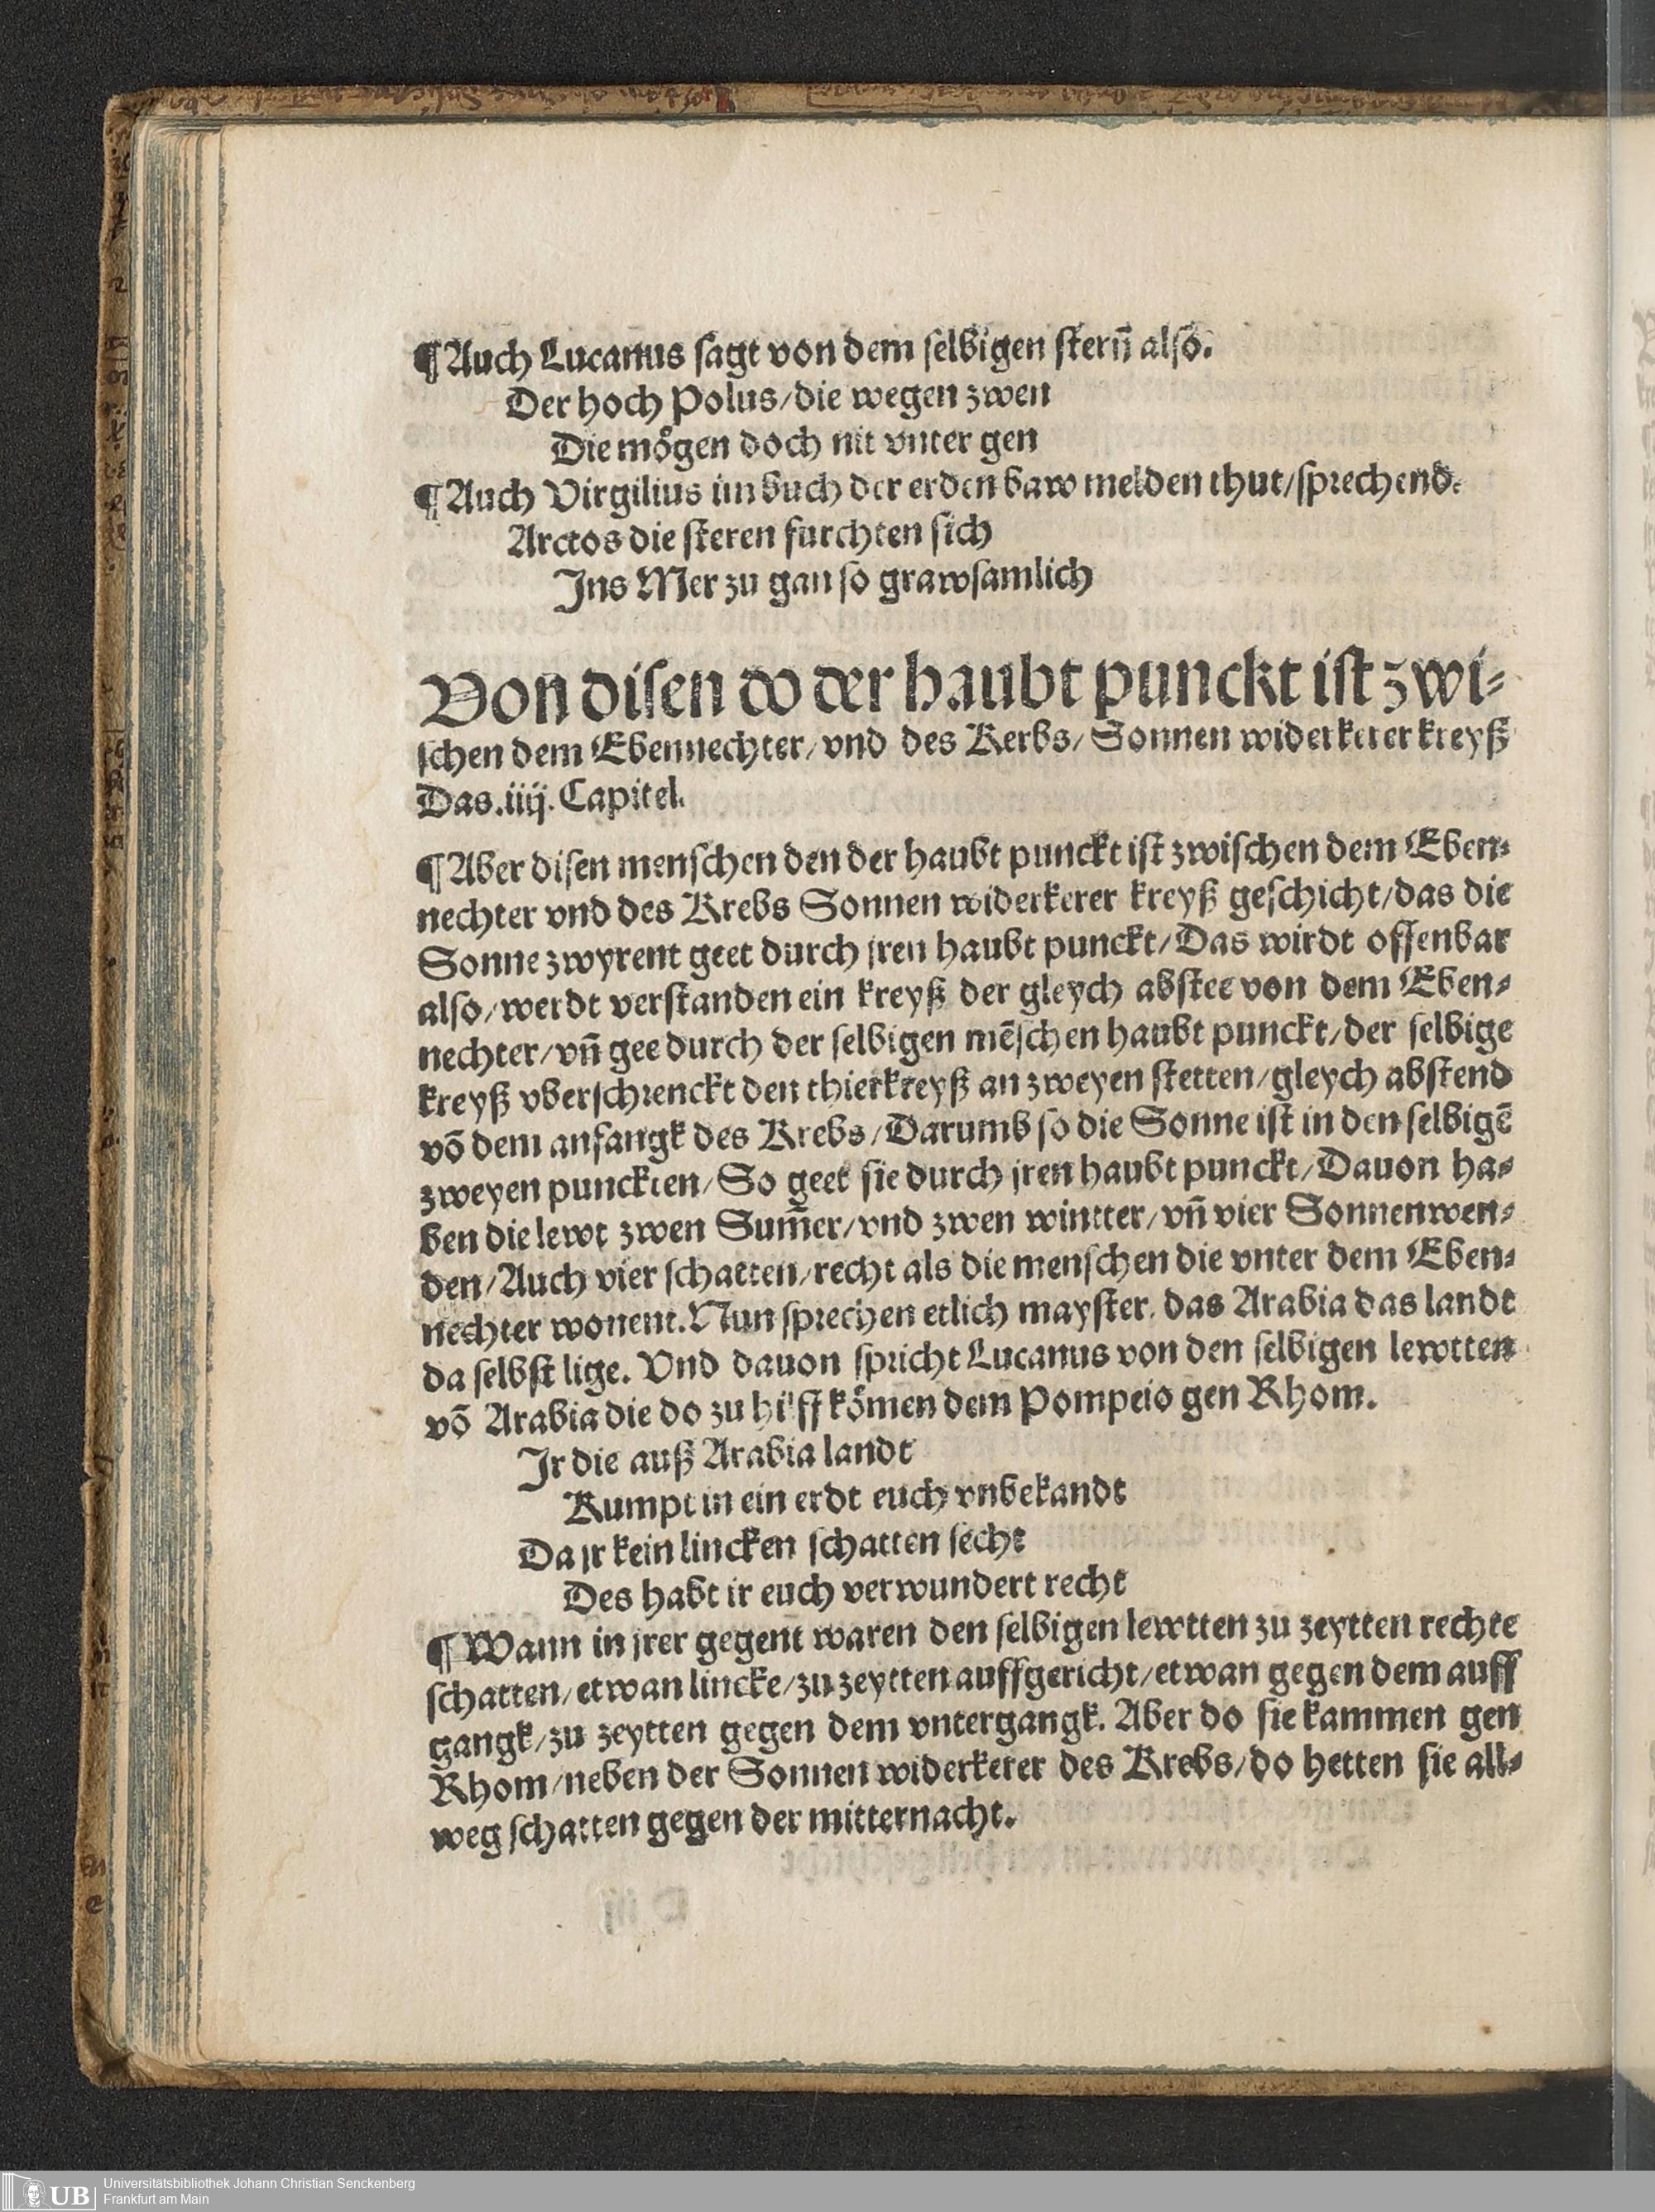 ¶Auch Lucanus ſagt von dem ſelbigen ſtern̄ alſo.
Der hoch Polus/die wegen zwen
Die mögen doch nit vnter gen
¶Auch Virgilius im buch der erden baw melden thut/ſprechend.
Arctos die ſteren furchten ſich
Ins Mer zu gan ſo grawſamlich
Von diſen do der haubt punckt iſt zwi⸗
ſchen dem Ebennechter/vnd des Kerbs/Sonnen widerkerer kreyß
Das.iiij.Capitel.
¶Aber diſen menſchen den der haubt punckt iſt zwiſchen dem Eben⸗
nechter vnd des Krebs Sonnen widerkerer kreyß geſchicht/das die
Sonne zwyrent geet durch jren haubt punckt/Das wirdt offenbar
alſo/werdt verſtanden ein kreyß der gleych abſtee von dem Eben⸗
nechter/vn̄ gee durch der ſelbigen mēſchen haubt punckt/der ſelbige
kreyß vberſchrenckt den thierkreyß an zweyen ſtetten/gleych abſtend
vō dem anfangk des Krebs/Darumb ſo die Sonne iſt in den ſelbigē
zweyen punckten/So geet ſie durch jren haubt punckt/Dauon ha⸗
ben die lewt zwen Sum̄er/vnd zwen wintter/vn̄ vier Sonnenwen⸗
den/Auch vier ſchatten/recht als die menſchen die vnter dem Eben⸗
nechter wonent.Nun ſprechen etlich mayſter. das Arabia das landt
da ſelbſt lige. Vnd dauon ſpricht Lucanus von den ſelbigen lewtten
vō Arabia die do zu hilff kōmen dem Pompeio gen Rhom.
Ir die auß Arabia landt
Kumpt in ein erdt euch vnbekandt
Da jr kein lincken ſchatten ſecht
Des habt ir euch verwundert recht
¶Wann in jrer gegent waren den ſelbigen lewtten zu zeytten rechte
ſchatten/etwan lincke/zu zeytten auffgericht/etwan gegen dem auff
gangk/zu zeytten gegen dem vntergangk. Aber do ſie kammen gen
Rhom/neben der Sonnen widerkerer des Krebs/do hetten ſie all⸗
weg ſchatten gegen der mitternacht.
UB
Universitätsbibliothek Johann Christian Senckenberg
Frankfurt am Main